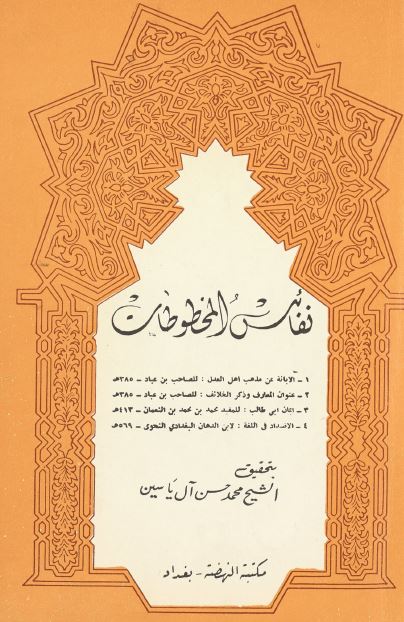 نفائس المخطوطات
١ - الابانة عن مذهب اهل العدل : للصاحب بن عباد - ٣٨٥هـ
٢ - عنوان المعارف وذكر الخلائف : للصاحب بن عباد - ٣٨٥هـ
٣ - ايمان ابي طالب : للمفيد محمد بن محمد بن النعمان - ٤١٣هـ
٤ - الاضداد في اللغة : لابن الدهان البغدادي النحوى - ٥٦٩هـ
بتحقيق
الشيخ محمد حسن آل ياسين
مكتبة النهضة - بغداد